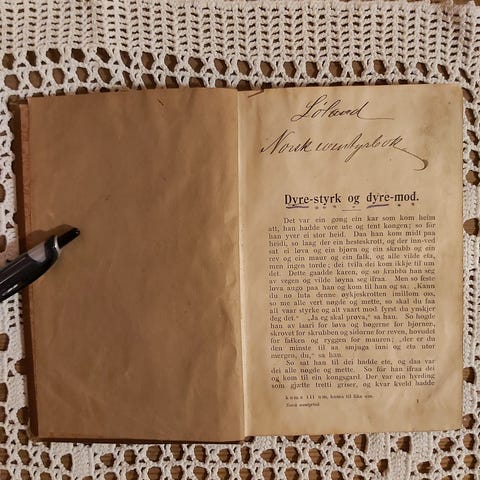 Løland
Norsk eventyrbok
Dyre-styrk og dyre-mod.
Det var ein gong ein kar som kom heim
att, han hadde vore ute og tent kongen; so fór
han yver ei stor heid. Daa han kom midt paa
heidi, so laag der ein hesteskrott, og der inn-ved
sat ei løva og ein bjørn og ein skrubb og ein
rev og ein maur og ein falk, og alle vilde eta,
men ingen torde; dei tvila dei kom ikkje til um
det. Dette gaalde karen, og so krabba han seg
av vegen og vilde løyna seg ifraa. Men so feste
løva augo paa han og kom til han og sa: „Kann
du no luta denne øykjeskrotten imillom oss,
so me alle vert nøgde og mette, so skal du faa
all vaar styrke og alt vaart mod fyrst du ynskjer
deg det.“ „Ja eg skal prøva,“ sa han. So hogde
han av laari for løva og bøgerne for bjørner,
skrovet for skrubben og sidorne for reven, hovudet
for falken og ryggen for mauren; „der er du
den minste til aa smjaga inni og eta utor
mergen, du,“ sa han.
So sat han til dei hadde ete, og daa var
dei alle nøgde og mette. So fór han ifraa dei
og kom til ein kongsgard. Der var ein hyrding
som gjætte tretti griser, og kvar kveld hadde
koma til um, koma til lika um.
Norsk eventyrbok
1